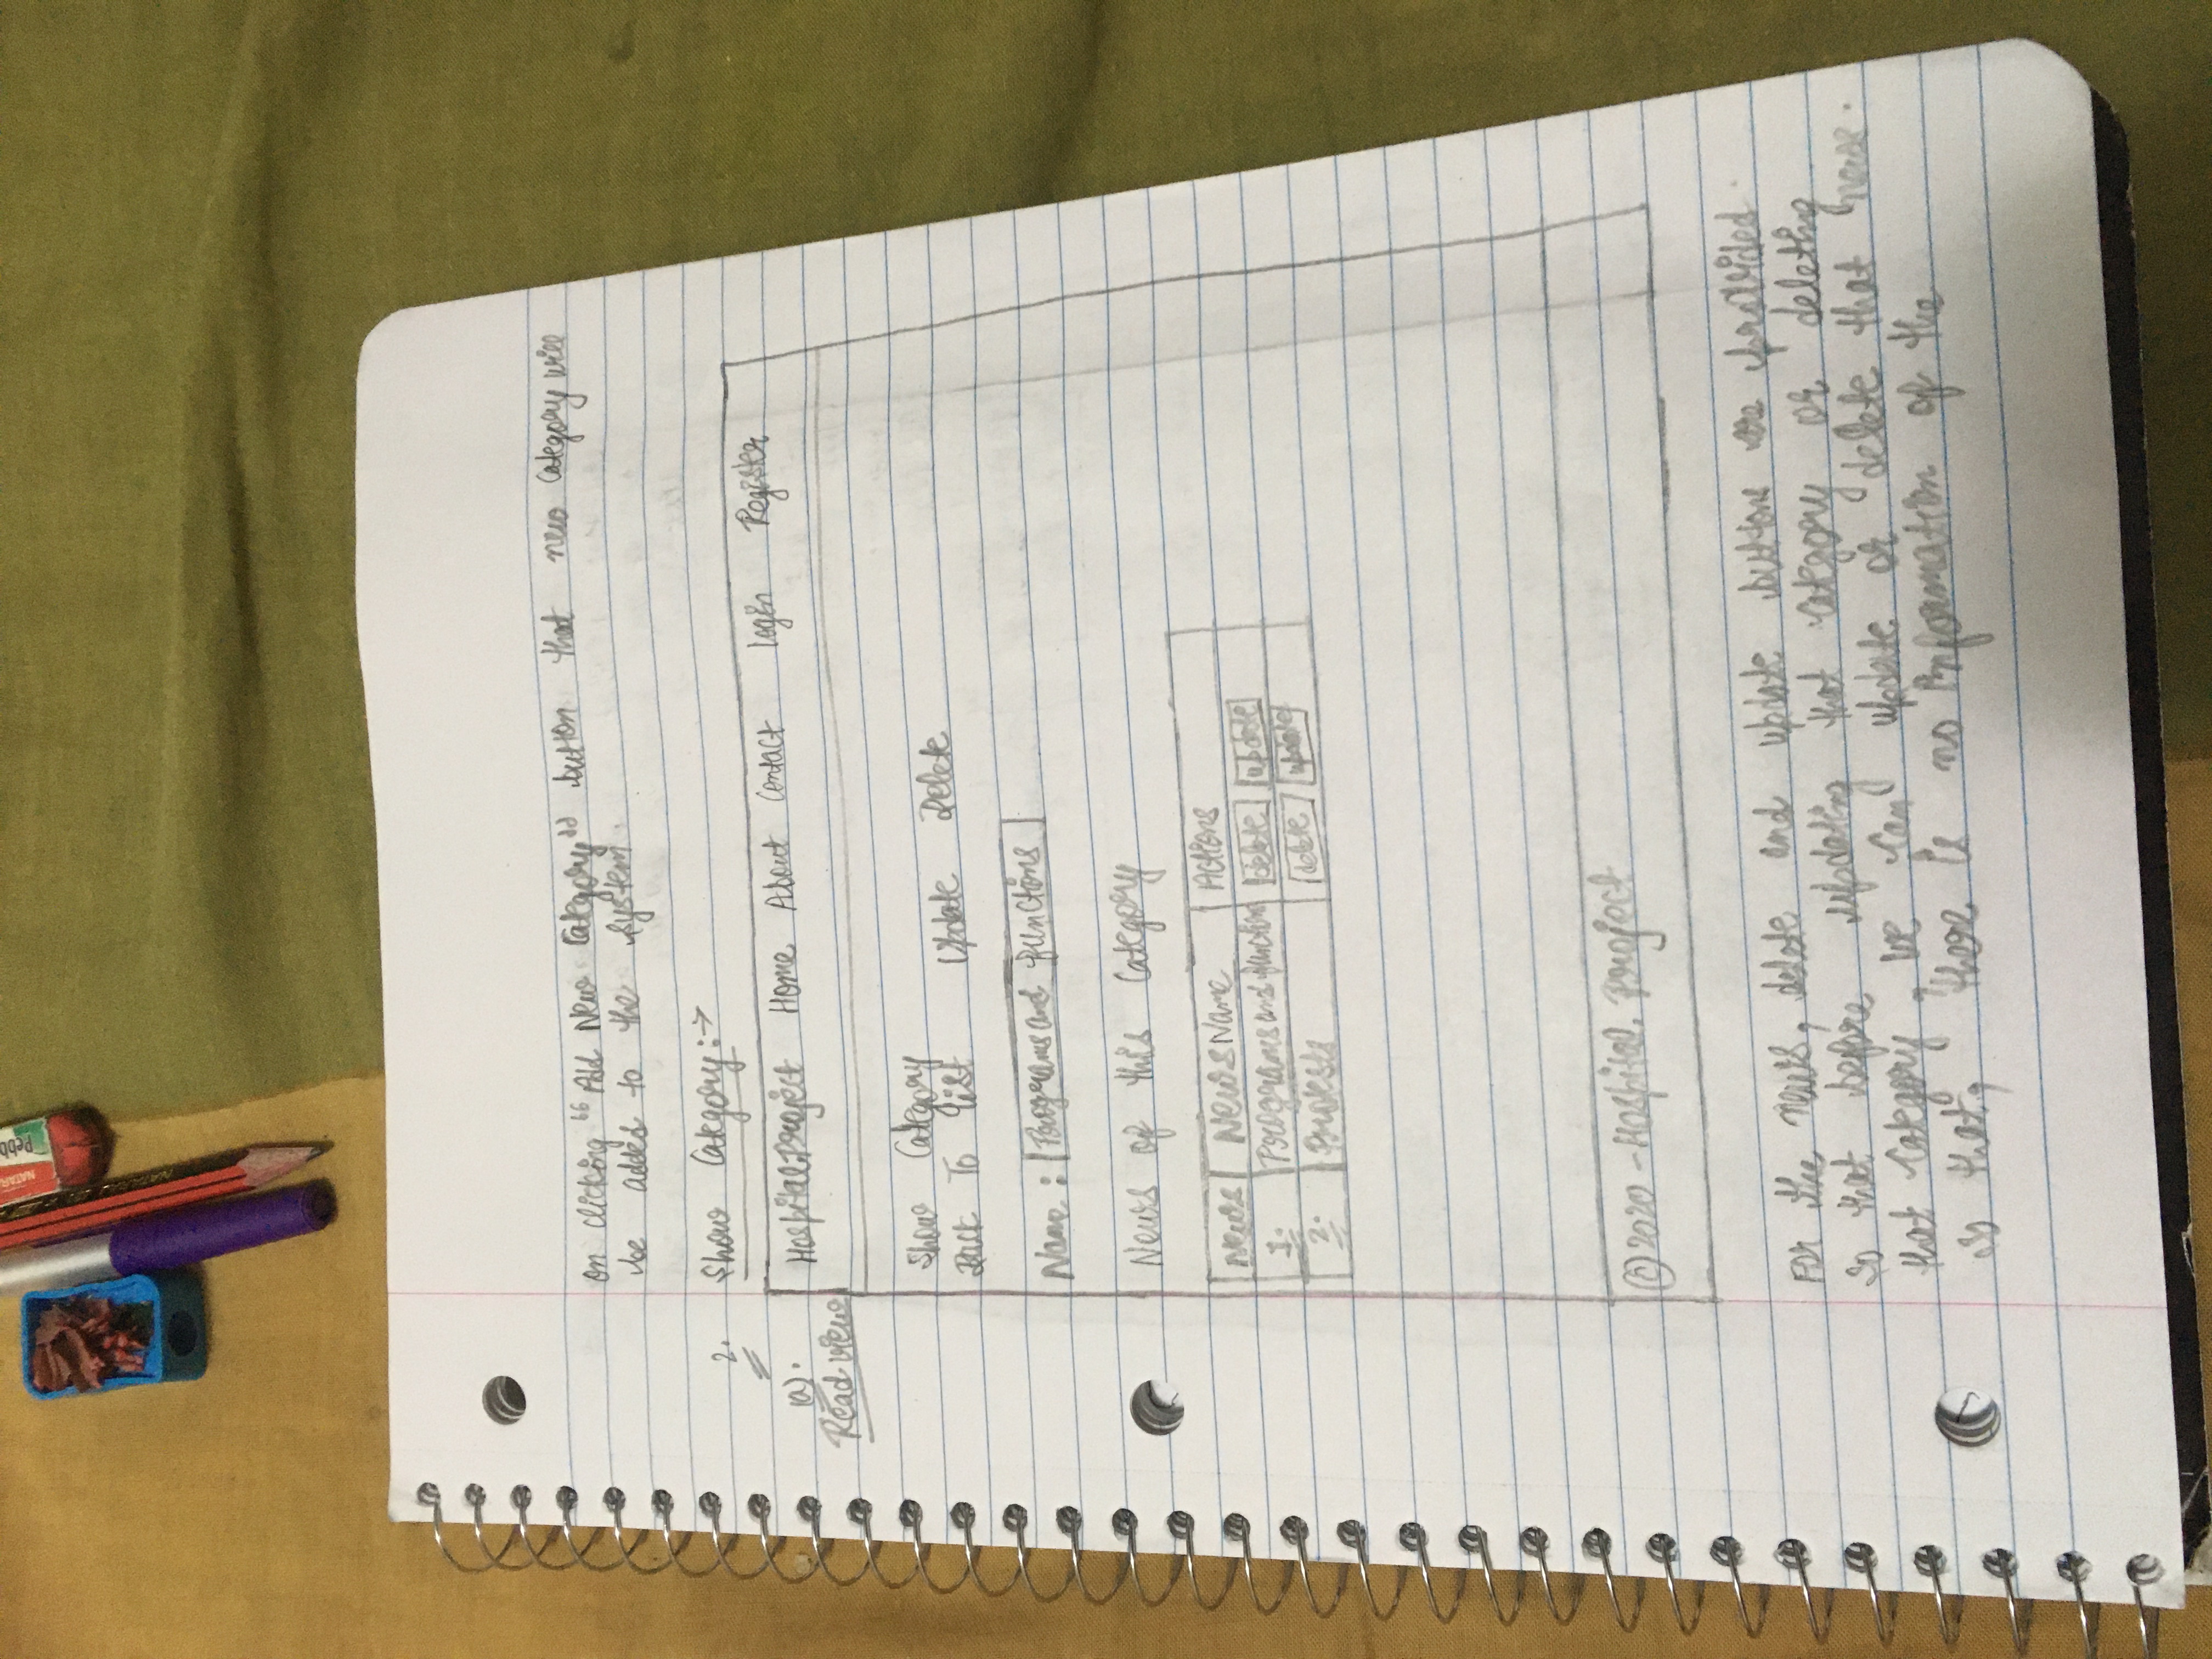 NATAR
Pebb
on clicking "Add New Category" button that new category will
be added to the system.
2. Show Category:->
(a).
Read view
HospitalProject Home About Contact Login Register
Show Category
Back To List Update Delete
Name: Programs and functions
News of this Category
News NewsName Actions
1. Programs and functions delete update
2. Protests delete update
© 2020 - Hospital Project
For the news, delete and update buttons are provided.
so that before updating that category or deleting
that category, we can update or delete that news.
so that, there is no information of the